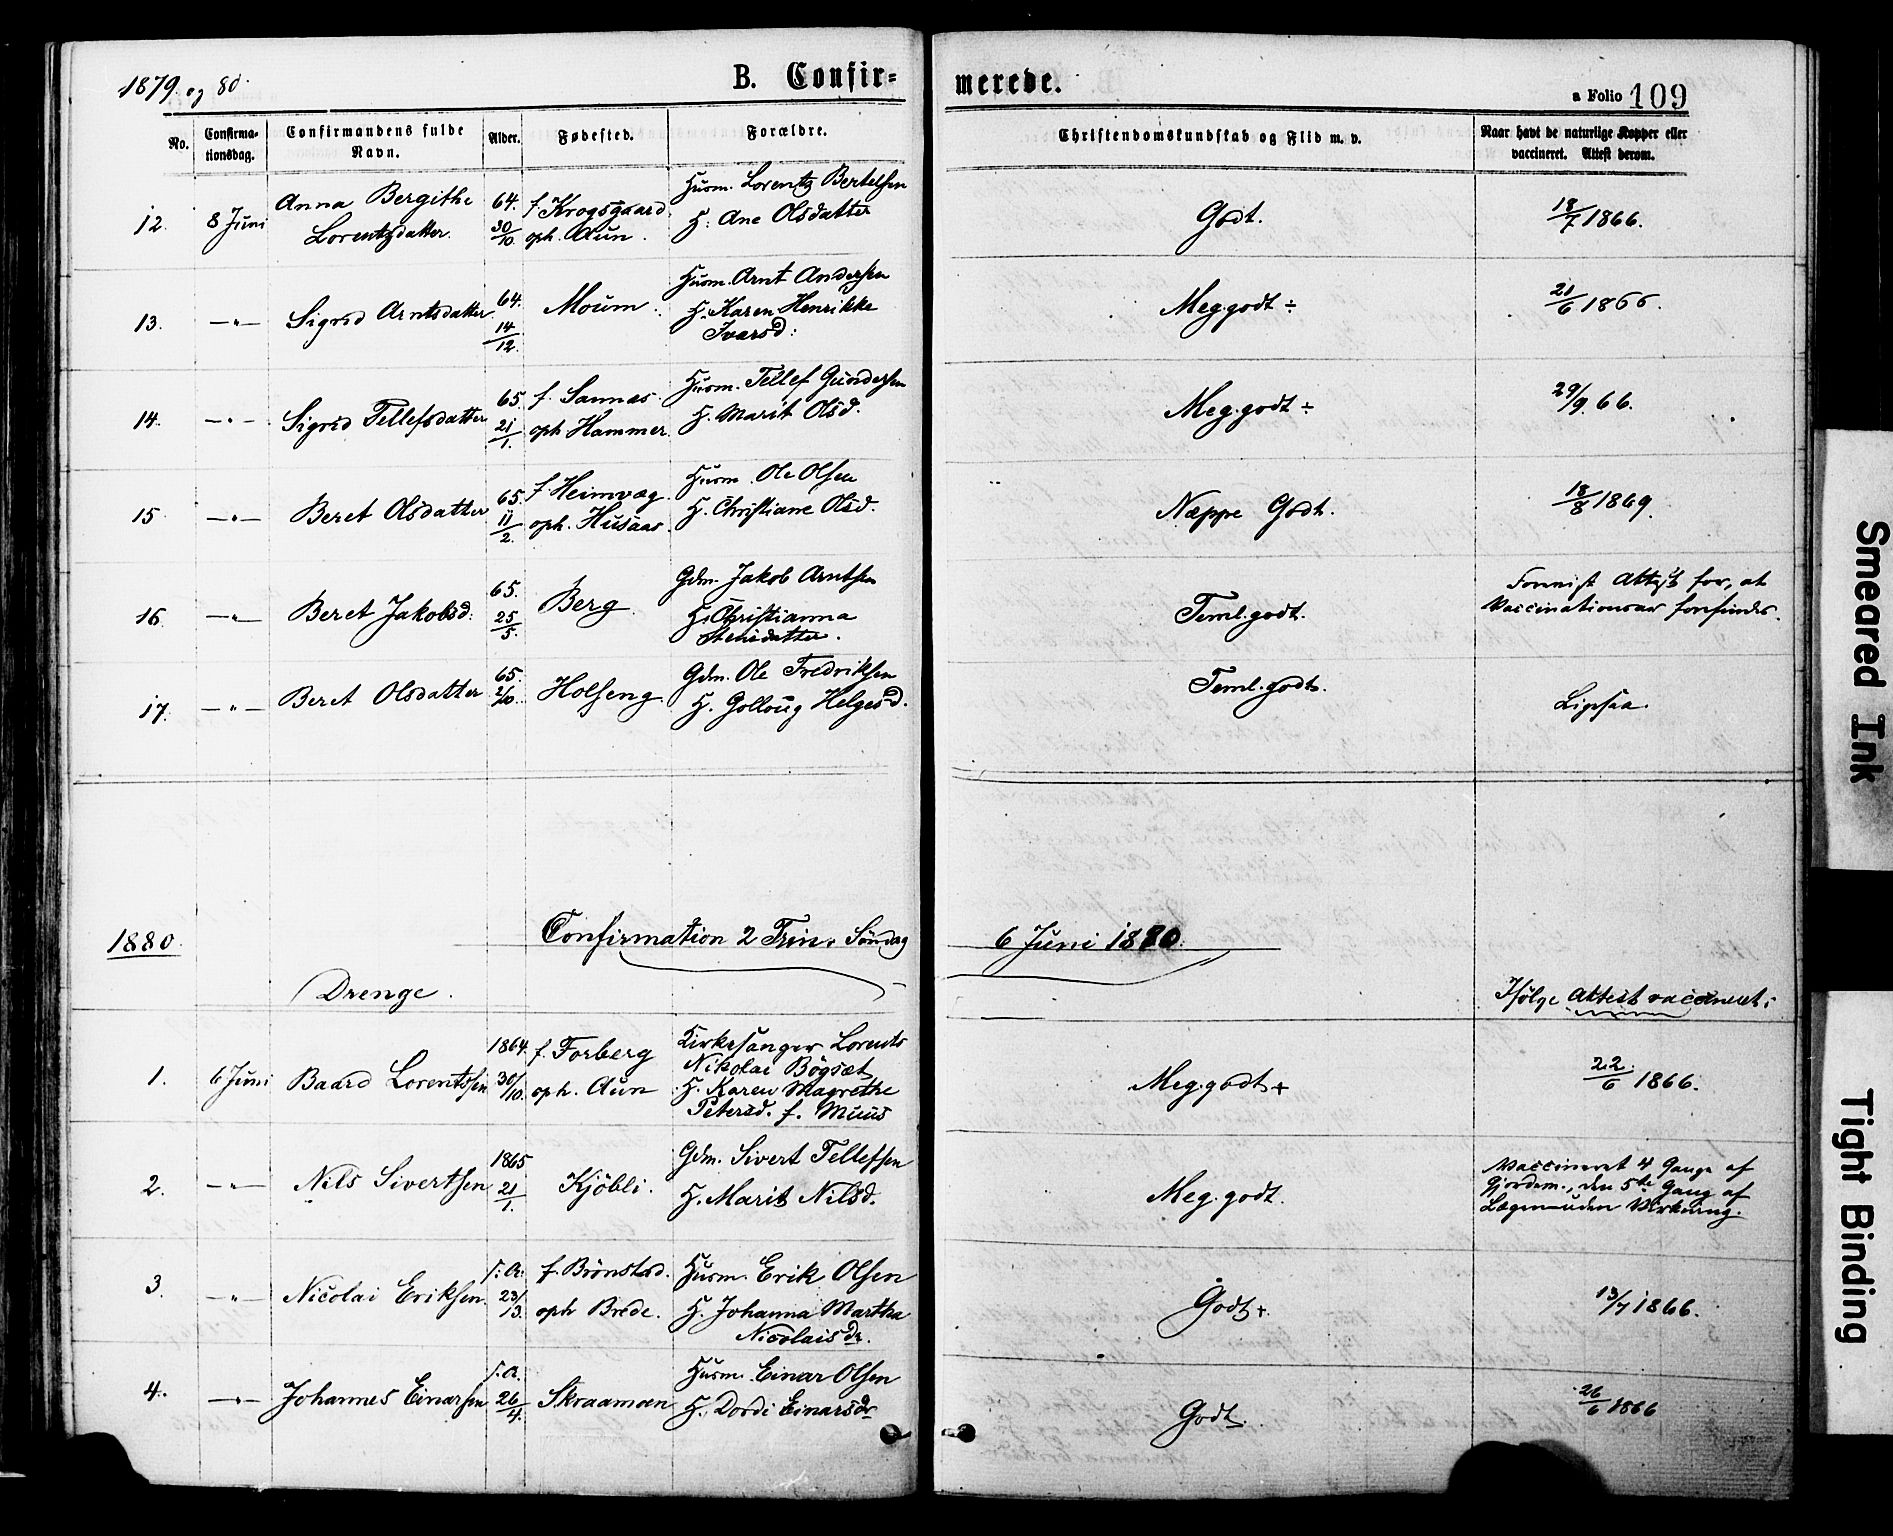 1879 og 80.
B. Confir=
merede.
a Folio 109
No.
Confirma-
tionsdag.
Confirmandens fulde
Navn.
Alder.
Fødested.
Forældre.
Christendomskundskab og Flid m. v.
Naar havt de naturlige Kopper eller
vaccineret. Attest derom.
12. 8 Juni Anna Bergithe Lorentzdatter. 64. 30/10. f. Krogsgaard oph. Aun. Husm. Lorentz Bertelsen
H: Ane Olsdatter
Godt. 18/7 1866.
13. —"— Sigrid Arntsdatter. 64. 14/12. Moum. Husm. Arnt Andersen
H. Karen Henrikke
Ivarsd:
Meg. godt ÷ 21/6 1866.
14. —"— Sigrid Tellefsdatter 65. 21/1. f. Sannas. oph Hammer. Husm. Tellef Gundersen
H. Marit Olsd.
Meg. godt ÷ 29/9. 66.
15 —"— Beret Olsdatter 65. 11/2. f. Heimvæg. oph. Husaas. Husm. Ole Olsen
H. Christiane Olsd.
Næppe Godt. 18/8 1869.
16. —"— Beret Jakobsd: 65. 25/5. Berg. Gdm. Jakob Arntsen
H. Christianna
Teml. godt. for, at
Vaccinationsar forefindes.
17. —"— Beret Olsdatter 65. 2/10. Holseng. Gdm. Ole Fredriksen
H. Golloug Helgesd.
Teml. godt. Ligesaa.
1880. Confirmation 2 Trin. Söndag 6 Juni 1880.
Drenge.
Ifölge Attest vaccineret:
1. 6 Juni Baard Lorentssen 1864 30/10. f. Forberg oph. Aun Kirkesanger Lorents
Nikolai Bögset
H. Karen Magrethe
Petersd. f. Muus
Meg. godt + 22/6 1866.
2. —"— Nils Sivertsen 1865 21/1. Kjöbli. Gdm. Sivert Tellefsen
H. Marit Nilsd.
Meg. godt. Vaccineret 4 Gange af
Gjordem., den 5te Gang af
Lægen uden Virkning.
3. —"— Nicolai Eriksen. s. A. 23/3. f. Brönstad. oph Brede. Husm. Erik Olsen
H. Johanna Martha
Nicolaisdr.
Godt + 13/7 1866.
4. —"— Johannes Einarsen s. A. 26/4. Skraamoen Husm. Einar Olsen
H. Dordi Einarsdr
Godt. 26/6 1866
Smeared Ink
Tight Binding